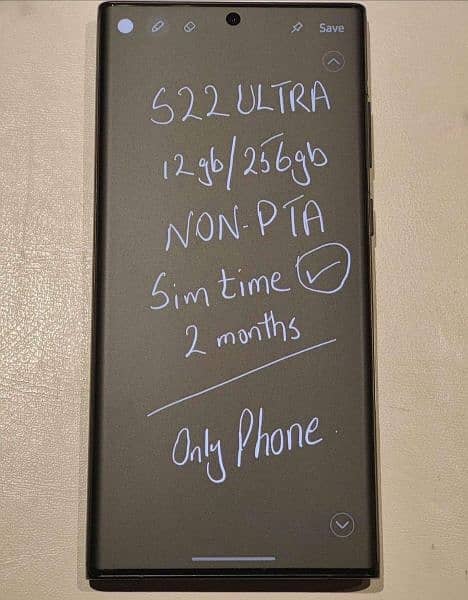 Save
S22 ULTRA
12gb/256gb
NON-PTA
Sim time
2 months
Only Phone.